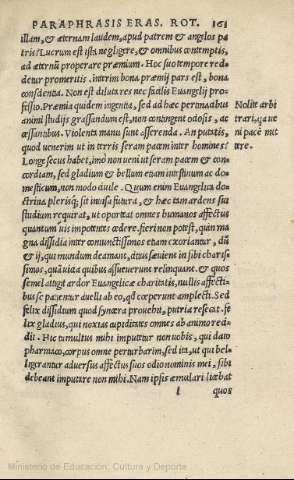 PARAPHRASIS ERAS. ROT. 161
illam, & æternam laudem, apud patrem & angelos pa
tris? Lucrum est ista negligere, & omnibus contemptis,
ad æternū properare præmium. Hoc suo tempore red
detur promeritis. interim bona præmij pars est, bona
conscientia. Non est dilutares nec facilis Euangelij pro
fessio. Præmia quidem ingentia, sed ad hæc pertinacibus
animi studijs grassandum est, non contingent odosis, ac
cessantibus. Violenta manu sunt asserenda. An putatis,
quod uenerim ut in terris seram pacem inter homines?
Longe secus habet, imò non ueni ut seram pacem & con
cordiam, sed gladium & bellum etiam intestinum ac do
mesticum, non modo ciuile. Quum enim Euangelica do
ctrina plerisq; sit inuisa futura, & hæc tam ardens sui
studium requirat, ut oporteat omnes humanos affectus
quantum uis impotentes cedere, fieri non potest, quin ma
gna dissidia inter coniunctissimos etiam exoriantur, dū
& ij, qui mundum deamant, atrociter sæuient in sibi charis
simos, quia uita quibus assueuerunt relinquunt. & quos
semel attigit ardor Euangelicæ charitatis, nullis affecti
bus se patientur auelli ab eo, qd cœperunt amplecti. Sed
felix dissidium quod synceræ prouehit, putria resecat. fe
lix gladius, qui noxias cupiditates omnes ab animo rese
dit. Hic tumultus mihi imputetur non uobis, qui dam
pharmaco, corpus omne perturbarim, sed ita, ut qui bel-
ligerantur aduersus affectus suos odio nominis mei, sibi
debeant imputare non mihi. Nam ipsis æmulari licebat
l quos
Nolite arbi
trari, quia ue
ni pacē mit
tere.
Ministerio de Educación, Cultura y Deporte